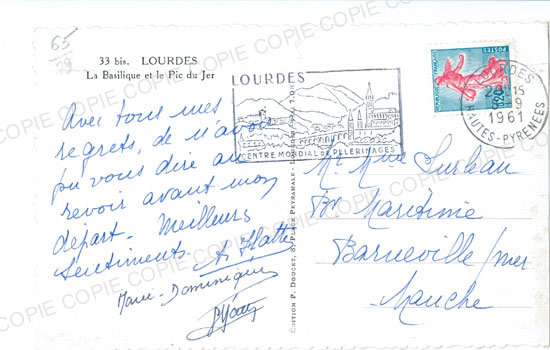 65
33 bis. LOURDES
La Basilique et le Pic du Jer
Avec tous mes
regrets, de n'avoir
pu vous dire au
revoir avant mon
départ. Meilleurs
Sentiments.
Marie-Dominique
LOURDES
CENTRE MONDIAL DE PELERINAGES
LOURDES
15
9
1961
HAUTES-PYRENEES
POSTES
0,20
EDITION P. DOUCET, 8, PLACE PEYRAMALE - LOURDES
Mr Mme Surleau
Bd Maritime
Barneville s/mer
Manche
COPIE COPIE COPIE COPIE COPIE